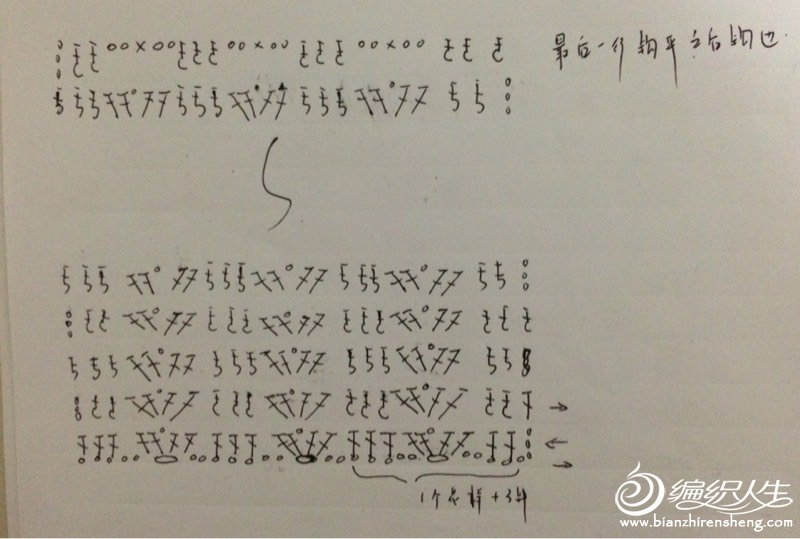 最后一行钩平之后钩边.
1个花样+3针
编织人生
www.bianzhirensheng.com